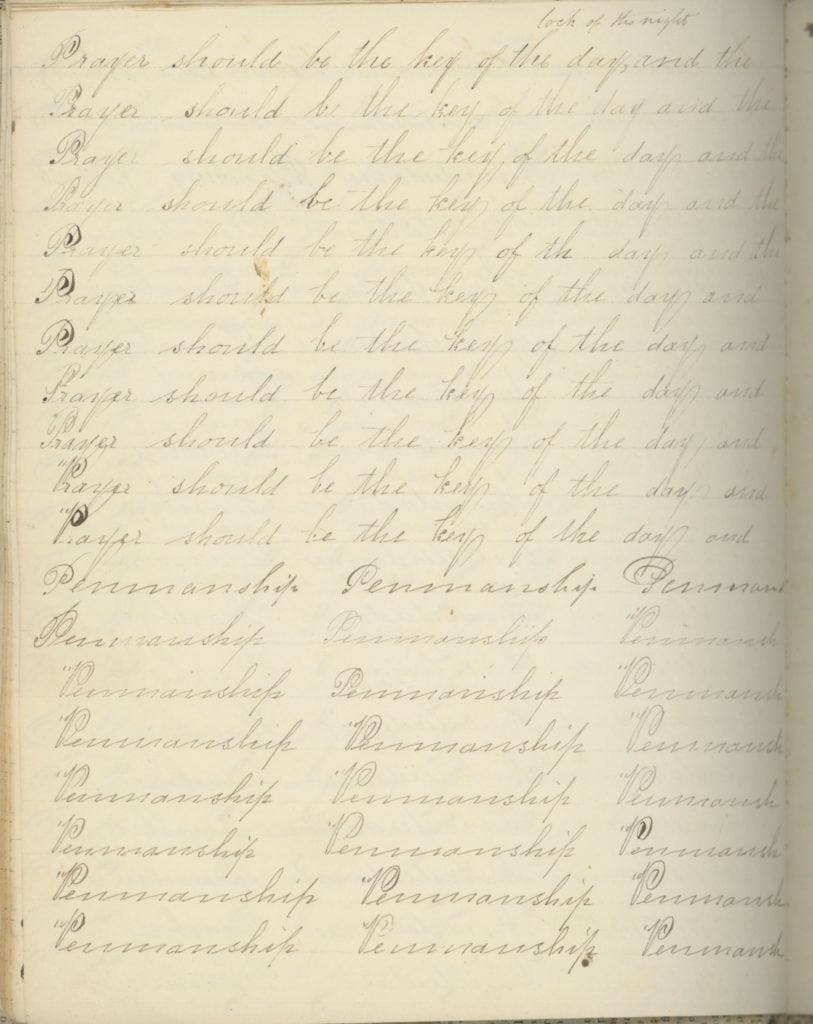 lock of the night
Prayer should be the key of the day, and the
Prayer should be the key of the day and the
Prayer should be the key of the day and the
Prayer should be the key of the day and the
Prayer should be the key of th day and the
Prayer should be the key of the day and
Prayer should be the key of the day and
Prayer should be the key of the day and
Prayer should be the key of the day and
Prayer should be the key of the day and
Prayer should be the key of the day and
Penmanship Penmanship Penmans
Penmanship Penmanship Penmansh
Penmanship Penmanship Penmansh
Penmanship Penmanship Penmansh
Penmanship Penmanship Penmansh
Penmanship Penmanship Penmansh
Penmanship Penmanship Penmansh
Penmanship Penmanship Penmansh